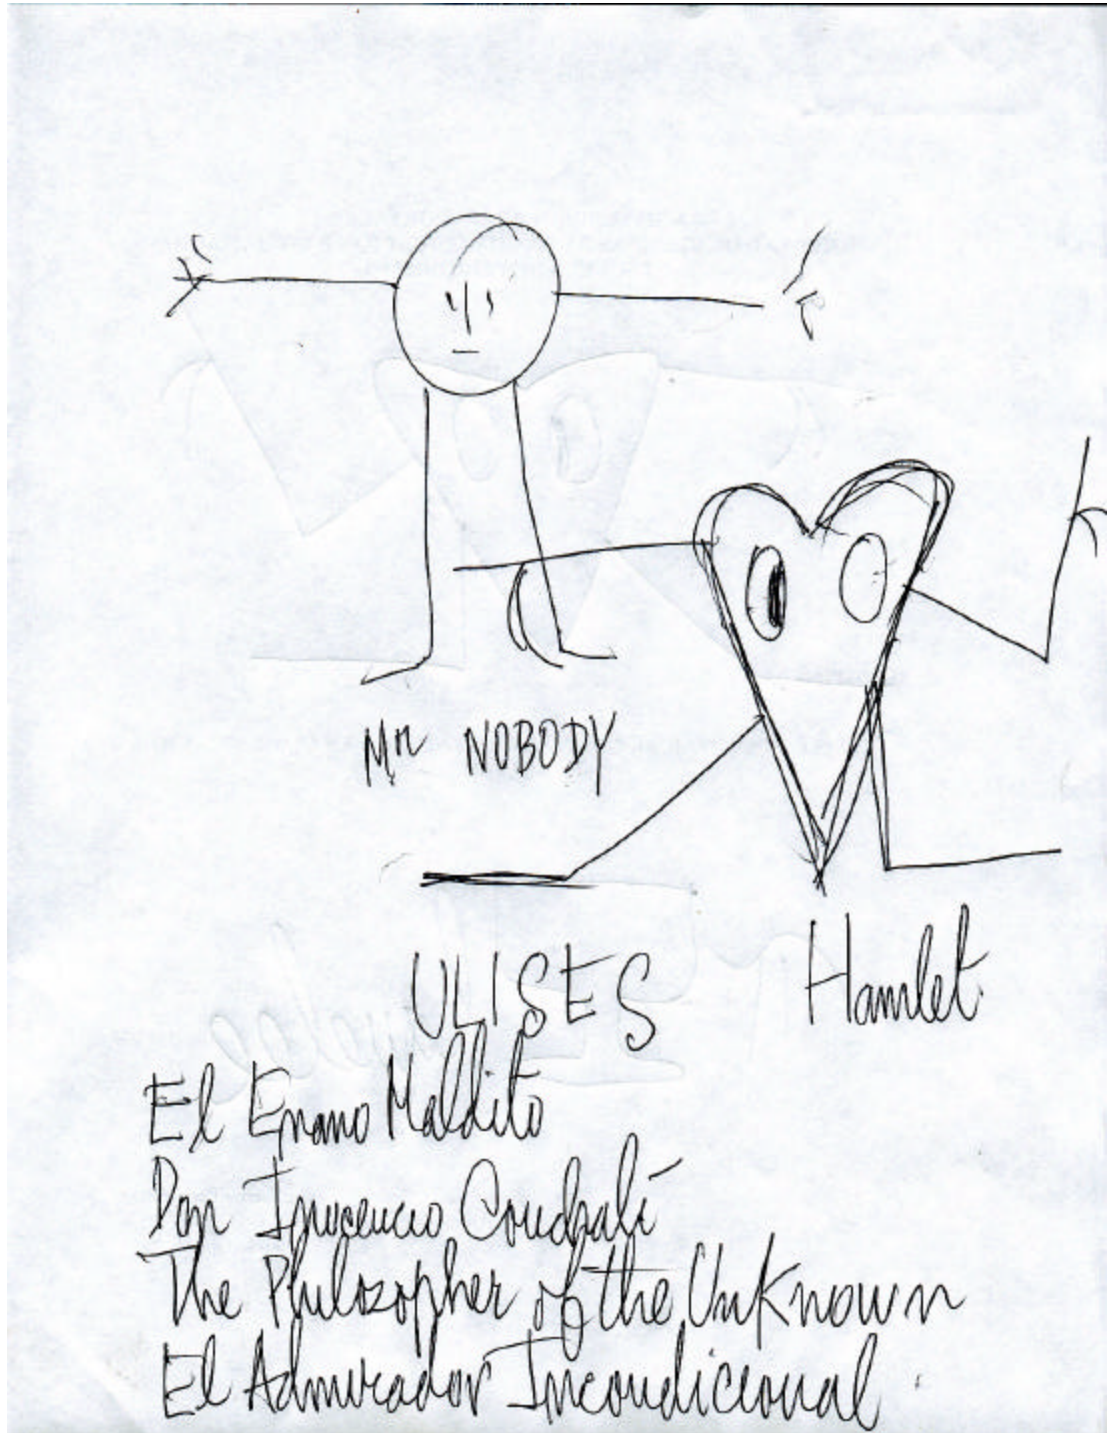 Mr NOBODY
ULISES
Hamlet
El Enano Maldito
Don Inocencio
The Philosopher of the UnKnown
El Admirador Incondicional.